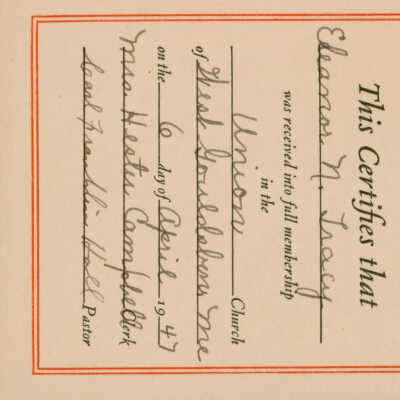 This Certifies that
Eleanor N. Tracy
was received into full membership
in the
Union Church
of West Gouldsboro Me
on the 6 day of April 1947
Mrs Hester Campbell Clerk
Carl Franklin Hall Pastor